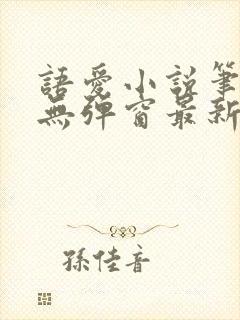 語愛小說筆
無彈窗最新
孫佳音